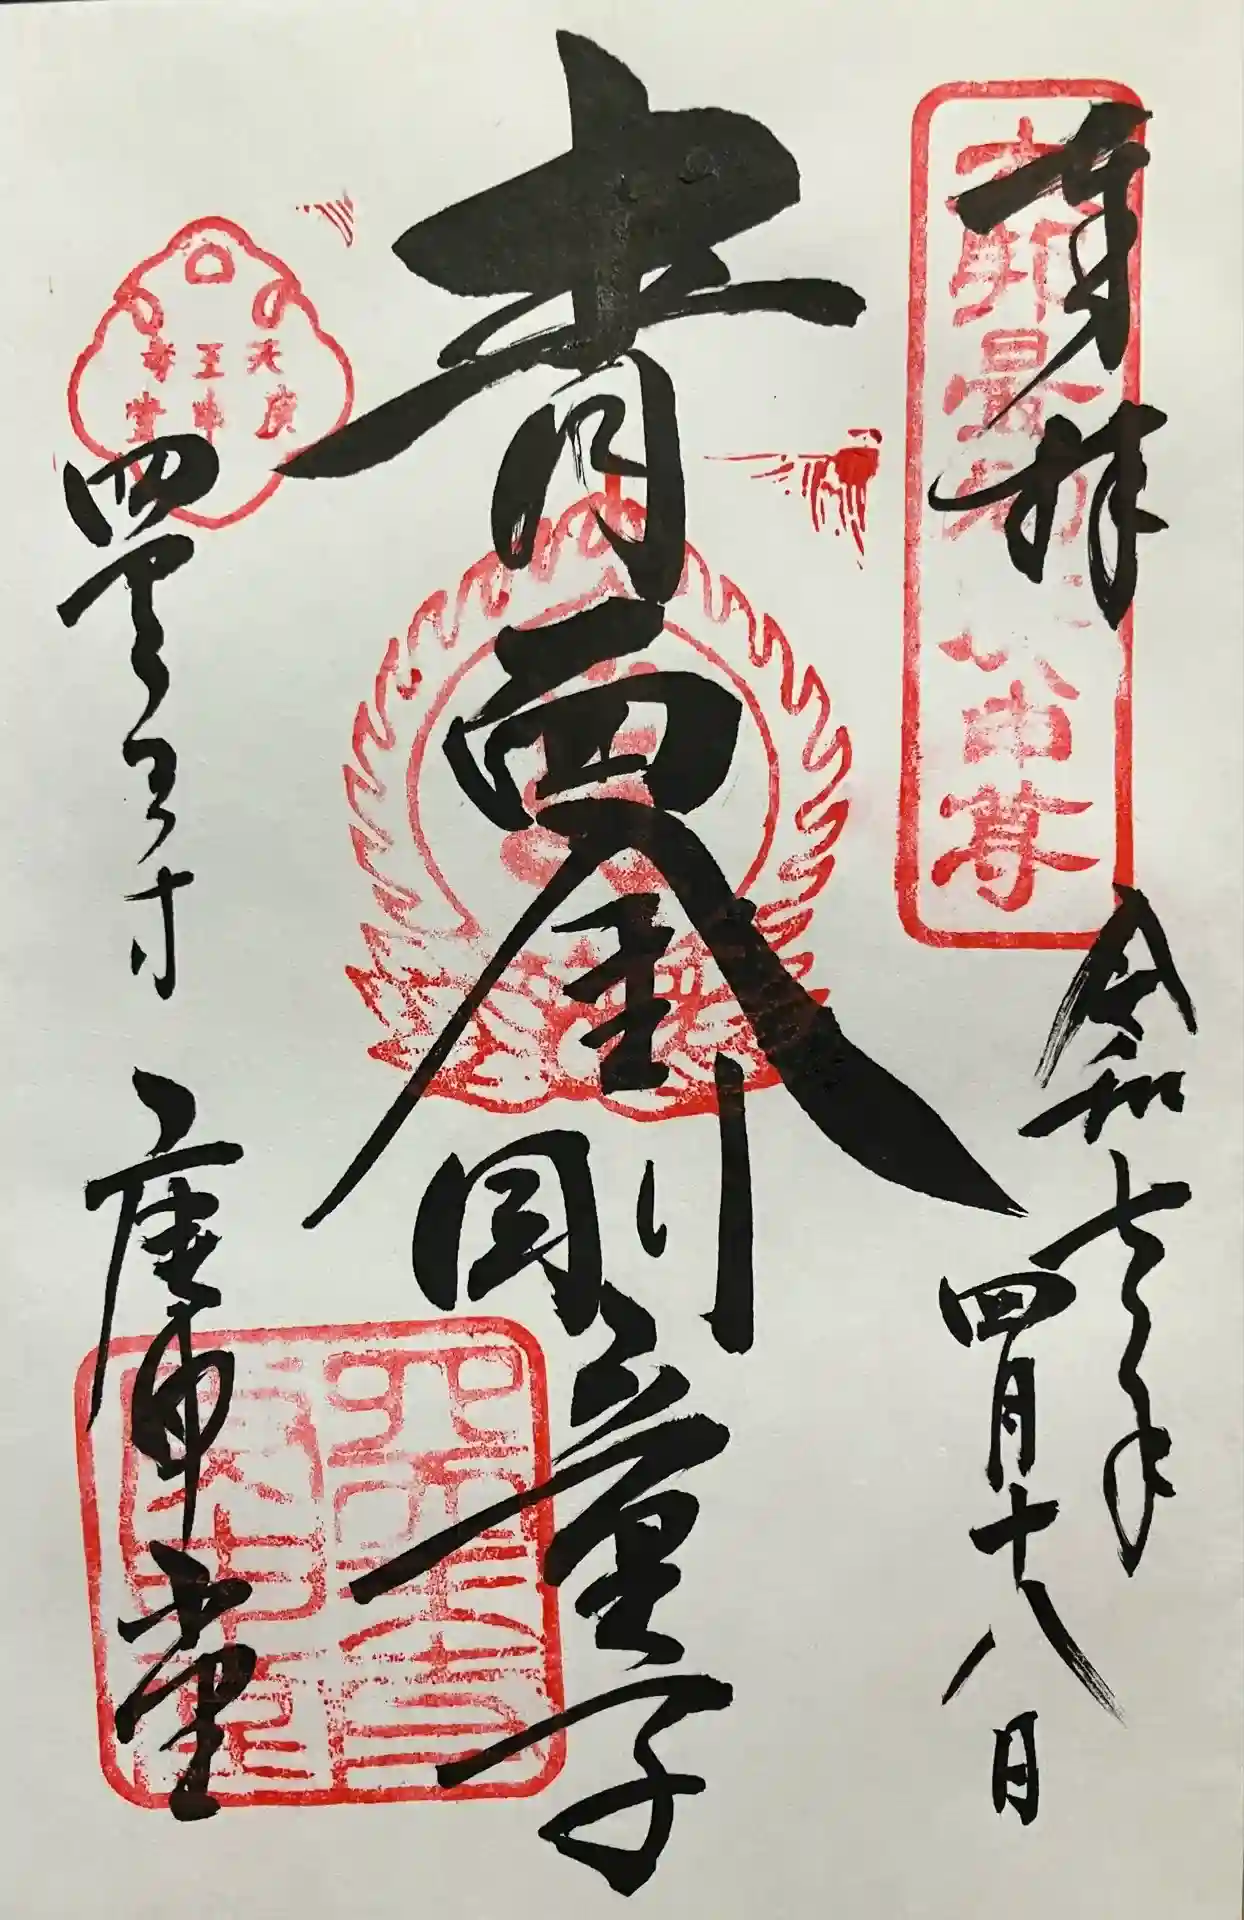 奉拝
本邦最初庚申尊
令和七年
四月十八日
青面金剛童子
四天王寺
庚申堂
天王寺
庚申堂
四天王寺
庚申堂